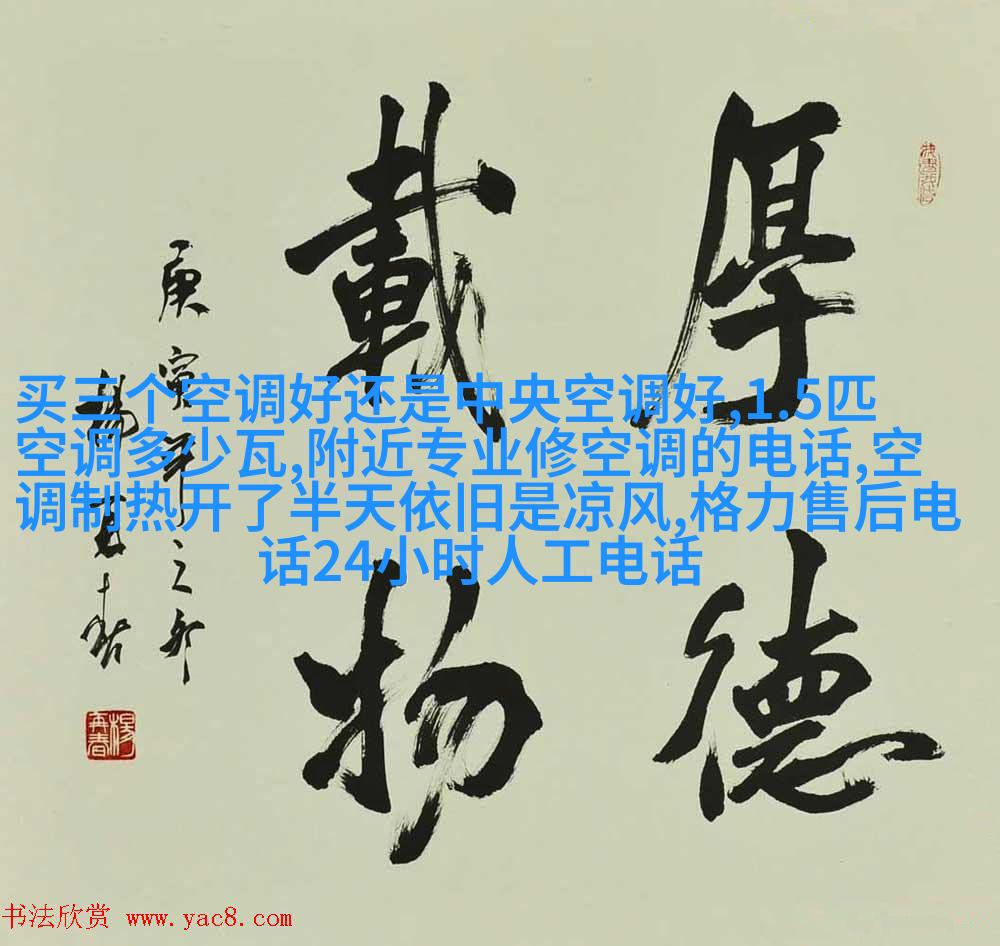 厚德
載物
庚寅年之夏
楊再春
楊再春
买三个空调好还是中央空调好,1.5匹
空调多少瓦,附近专业修空调的电话,空
调制热开了半天依旧是凉风,格力售后电
话24小时人工电话
书法欣赏 www.yac8.com